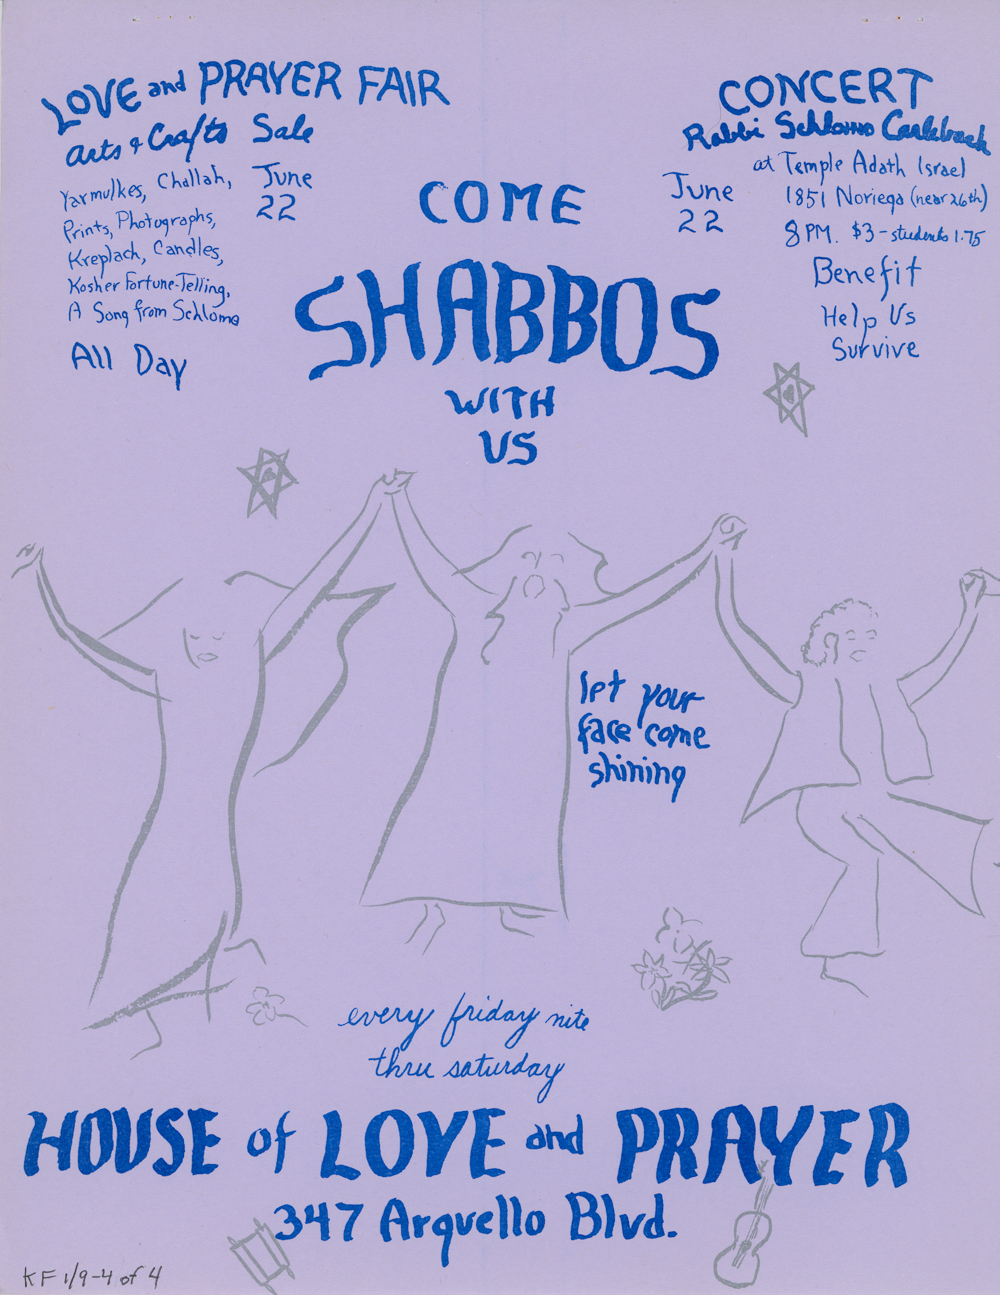 LOVE and PRAYER FAIR
Arts & Crafts Sale
Yarmulkes, Challah,
Prints, Photographs,
Kreplach, Candles,
Kosher Fortune-Telling,
A Song from Schlomo
All Day
June
22
CONCERT
Rabbi Schlomo Carlebach
at Temple Adath Israel
1851 Noriega (near 26th)
8 PM. $3-students 1.75
June
22
Benefit
Help Us
Survive
COME
SHABBOS
WITH
US
let your
face come
shining
every friday nite
thru saturday
HOUSE of LOVE and PRAYER
347 Arguello Blvd.
KF 1/9-4 of 4